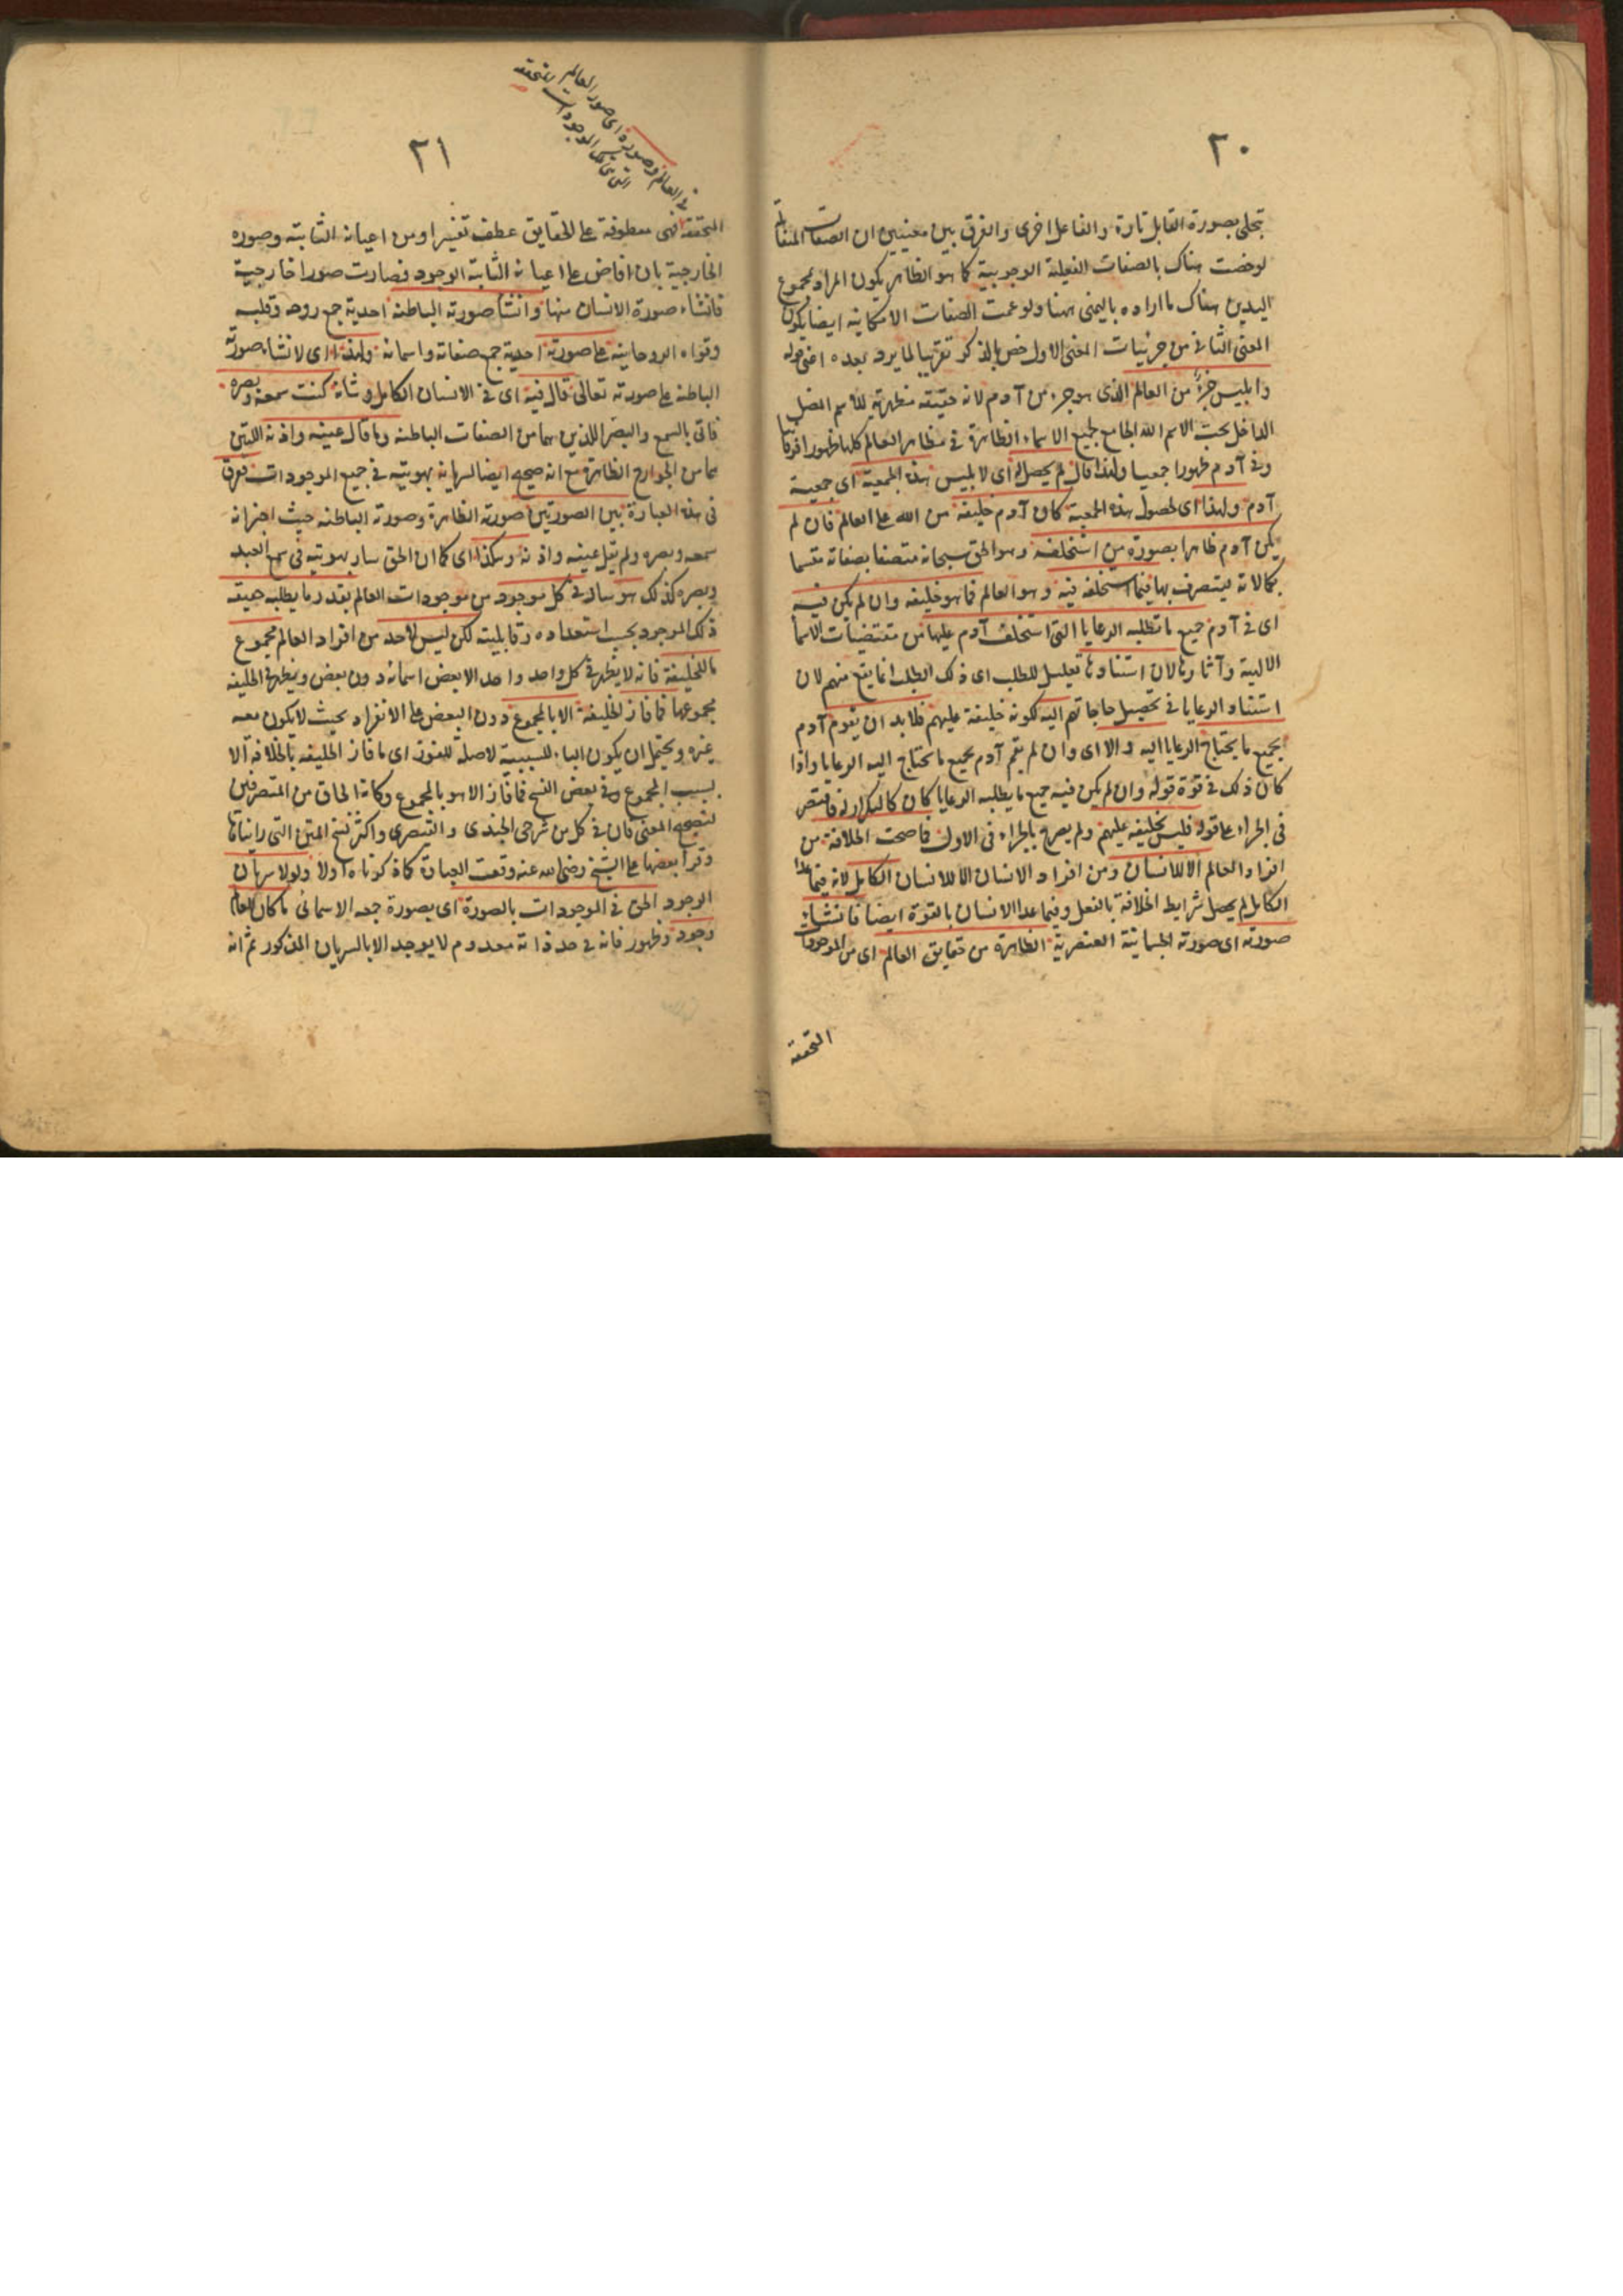 ٢٠
تجلى بصورة القابل تارة والفاعل اخرى والفرق بين معنيين ان الصفات المتقابلة
لو خصت هناك بالصفات الفعلية الوجوبية كما هو الظاهر يكون المراد مجموع
اليدين هناك ما اراده باليمنى ههنا ولو عمت الصفات الامكانية ايضا يكون
المعنى الثاني من جزئيات المعنى الاول خص بالذكر تقريبا لما يرد بعده اعنى قوله
وابليس جزء من العالم الذى هو جزء من آدم لانه حقيقته مظهرية للاسم المضل
الداخل تحت الاسم الله الجامع لجميع الاسماء الظاهرة فى مظاهر العالم كلها ظهورا فرقانيا
وفى آدم ظهورا جمعيا ولهذا قال لم يحصل له اى لابليس هذه الجمعية اى جمعية
آدم ولهذا اى لحصول هذه الجمعية كان آدم خليفة من الله على العالم فان لم
يكن آدم ظاهرا بصورة من استخلفه وهو الحق سبحانه متصفا بصفاته متسما
بكمالاته ليتصرف بها فيما استخلفه فيه وهو العالم فما هو خليفة وان لم يكن فيه
اى فى آدم جميع ما تطلبه الرعايا التى استخلف آدم عليها من مقتضيات الاسما
الالهية وآثارها لان استنادها تعليل للطلب اى ذلك الطلب انما يقع منهم لان
استناد الرعايا فى تحصيل حاجاتهم اليه لكونه خليفة عليهم فلا بد ان يقوم آدم
بجميع ما يحتاج الرعايا اليه والا اى وان لم يقم آدم بجميع ما يحتاج اليه الرعايا واذا
كان ذلك فى قوة قوله وان لم يكن فيه جميع ما يطلبه الرعايا كان كالتكرار له فاقتصر
فى الجزاء على قوله فليس بخليفة عليهم ولم يصرح بالجزاء فى الاول فما صحت الخلافة من
افراد العالم الا للانسان ومن افراد الانسان الا للانسان الكامل لانه فيما عدا
الكامل لم يحصل شرايط الخلافة بالفعل وفيما عدا الانسان بالقوة ايضا فانشاء
صورته اى صورته الجسمانية العنصرية الظاهرة من حقايق العالم اى من الموجودات
المتحققة
٢١
فى العالم وصوره اى صور العالم المتحققة
المتحققة فهى معطوفة على الحقايق عطف تفسير او من اعيانه الثابتة وصوره
الخارجية بان افاض على اعيانه الثابتة الوجود فصارت صورا خارجية
فانشاء صورة الانسان منها وانشا صورته الباطنة احدية جمع روحه وقلبه
وقواه الروحانية على صورته احدية جمع صفاته واسمائه ولهذا اى لانشاء صورته
الباطنة على صورته تعالى قال فيه اى فى الانسان الكامل وشانه كنت سمعه وبصره
فاتى بالسمع والبصر اللذين هما من الصفات الباطنة وما قال عينه واذنه اللتين
هما من الجوارح الظاهرة مع انه صحيح ايضا لسريانه بهويته فى جميع الموجودات ففرق
فى هذه العبارة بين الصورتين صورته الظاهرة وصورته الباطنة حيث اخبر انه
سمعه وبصره ولم يقل عينه واذنه وهكذا اى كما ان الحق سار بهويته فى سمع العبد
وبصره كذلك هو سار فى كل موجود من موجودات العالم بقدر ما يطلبه حقيقة
ذلك الموجود بحسب استعداده وقابليته لكن ليس لاحد من افراد العالم مجموع
ما للخليفة فانه لا يظهر فى كل واحد واحد الا بعض اسمائه دون بعض ويظهر فى الخليفة
مجموعها فما فاز الخليفة الا بالمجموع دون البعض على الانفراد بحيث لا يكون معه
غيره ويحتمل ان يكون الباء للسببية لا صلة للفوز اى ما فاز الخليفة بالخلافة الا
بسبب المجموع وفى بعض النسخ فما فاز الا هو بالمجموع وكانه الحاق من المتصرفين
لتصحيح المعنى فان فى كل من شرحى الجندى والقيصرى واكثر نسخ المتن التى رايناها
وقرأ بعضها على الشيخ رضى الله عنه وقعت العبارة كما ذكرناه اولا ولولا سريان
الوجود الحق فى الموجودات بالصورة اى بصورة جمعه الاسمائى ما كان للعالم
وجود وظهور فانه فى حد ذاته معدوم لا يوجد الا بالسريان المذكور ثم انه